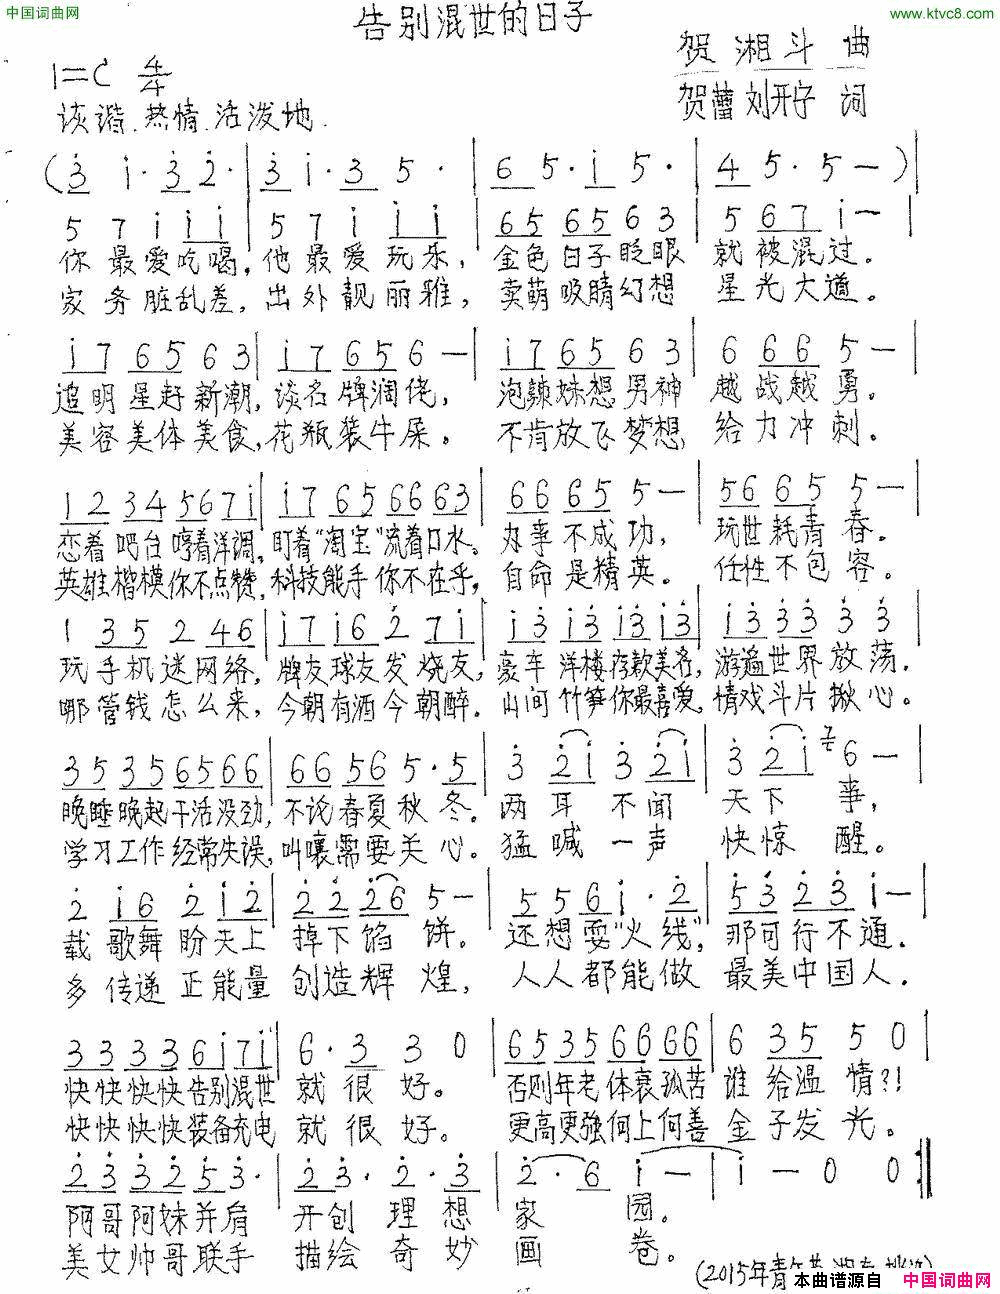 中国词曲网
www.ktvc8.com
告别混世的日子
1=C 4/4
贺湘斗 曲
诙谐.热情.活泼地.
贺蕾 刘开宇 词
(3 1·3 2·|3 1·3 5·|6 5·1 5·|4 5·5 —)|
5 7 1 1 1|5 7 1 1 1|65 65 6 3|5 67 1—|
你最爱吃喝,他最爱玩乐,金色日子眨眼就被混过.
家务脏乱差,出外靓丽雅,卖萌吸睛幻想星光大道。
17 65 6 3|17 65 6 —|17 65 6 3|6 66 5—|
追明星赶新潮,谈名牌阔佬,泡辣妹想男神越战越勇。
美容美体美食,花瓶装牛屎。不肯放飞梦想,给力冲刺。
12 34 56 71|17 65 66 63|66 65 5—|56 65 5—|
恋着吧台哼着洋调,盯着“淘宝”流着口水。办事不成功,玩世耗青春。
英雄楷模你不点赞,科技能手你不在乎,自命是精英.任性不包容.
1 35 2 46|17 16 2 71|13 13 13 13|13 33 3 3|
玩手机迷网络,牌友球友发烧友,豪车洋楼存款美名,游遍世界放荡.
哪管钱怎么来,今朝有酒今朝醉.山间竹笋你最喜爱,情戏斗片揪心。
35 35 65 66|66 56 5·5|3 21 3 21|3 21 7 6—|
晚睡晚起干活没劲,不论春夏秋冬。两耳不闻天下事,
学习工作经常失误,叫嚷需要关心。猛喊一声快惊醒。
2 16 2 12|22 26 5—|5 5 6 1·2|53 23 1—|
载歌舞盼天上掉下馅饼。还想耍“火线”,那可行不通.
多传递正能量创造辉煌,人人都能做最美中国人.
33 33 61 71|6·3 3 0|65 35 66 66|6 35 5 0|
快快快快告别混世就很好。否则年老体衰孤苦谁给温情?!
快快快快装备充电就很好。更高更强何上何善金子发光。
23 32 53·|23·2·3|2·6 1—|1—0 0:|
阿哥阿妹并肩开创理想家园。
美女帅哥联手描绘奇妙画卷。
(2015年青年节
本曲谱源自 中国词曲网